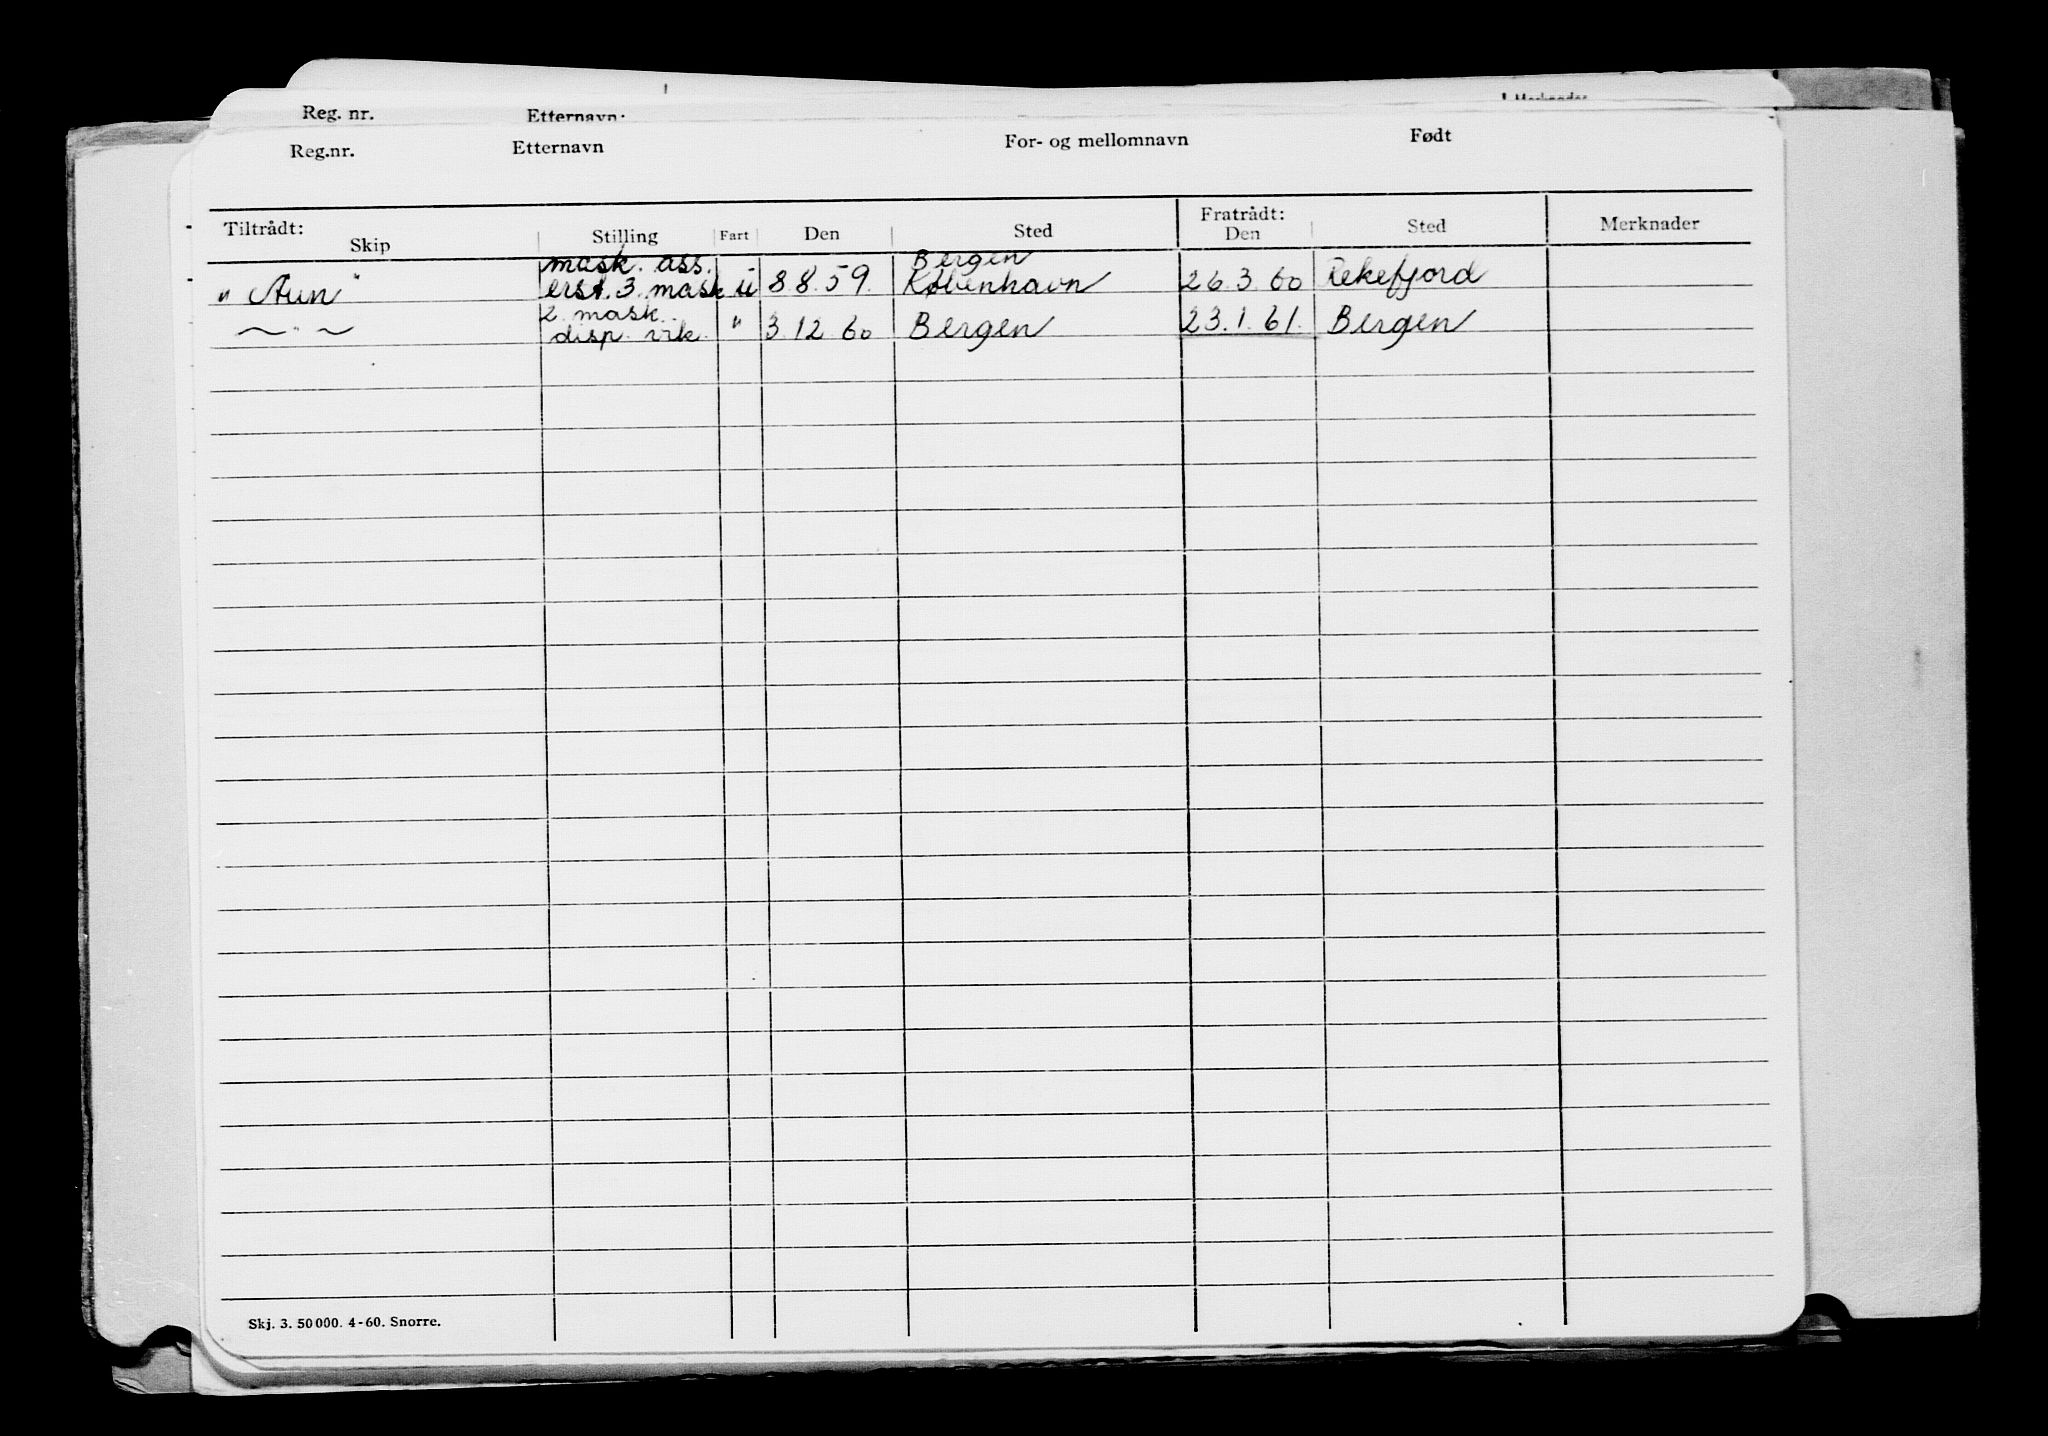 Reg. nr. Etternavn:
Reg.nr. Etternavn For- og mellomnavn Født
Tiltrådt: Fratrådt:
Skip Stilling Fart Den Sted Den Sted Merknader
mask. ass. Bergen
"Aun" erst. 3. mask u 8 8. 59. København 26. 3. 60 Rekefjord
2. mask.
—"— disp. vik. " 3. 12. 60 Bergen 23. 1. 61. Bergen
Skj. 3. 50 000. 4-60. Snorre.